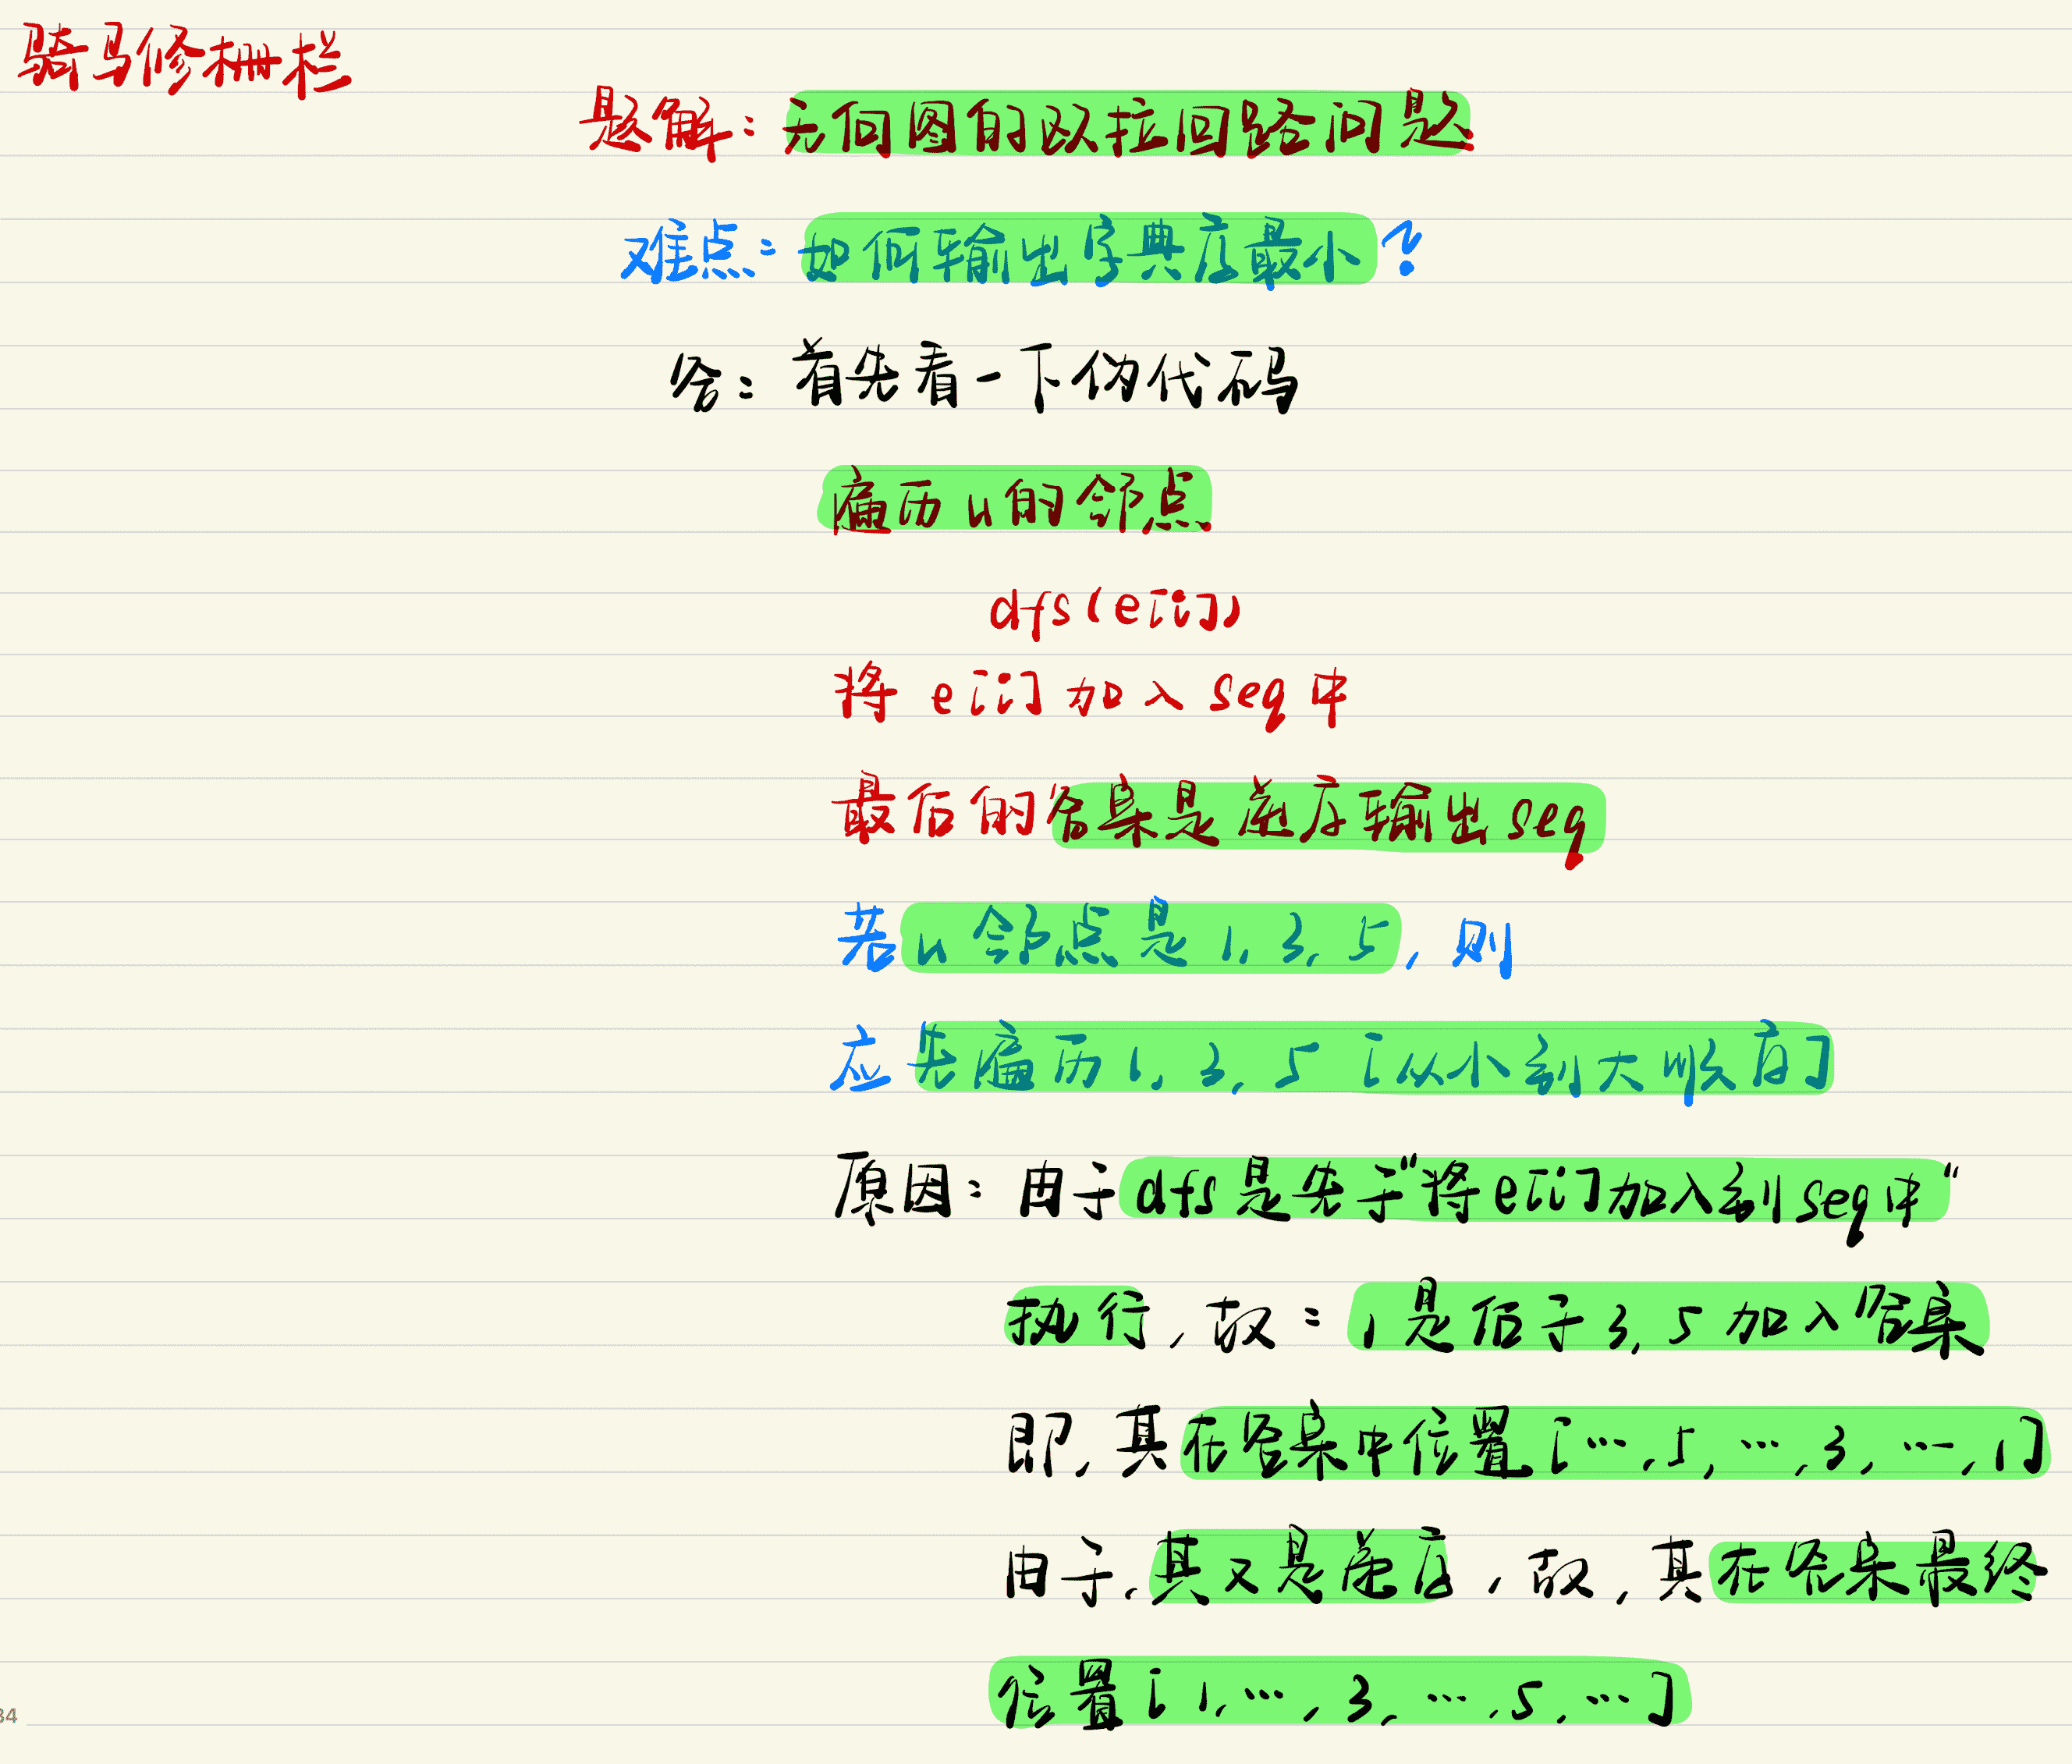 骑马修栅栏
题解：无向图的欧拉回路问题
难点：如何输出字典序最小？
答：首先看一下伪代码
遍历u的邻点
dfs(e[i])
将 e[i] 加入 seq 中
最后的答案是逆序输出 seq
若 u 邻点是 1, 3, 5, 则
应先遍历 1, 3, 5 [从小到大顺序]
原因：由于 dfs 是先于“将e[i]加入到seq中“
执行, 故：1是后于3, 5 加入答案
即, 其在答案中位置 […, 5, …, 3, …, 1]
由于, 其又是逆序, 故, 其在答案最终
位置 [1, …, 3, …, 5, …]
34